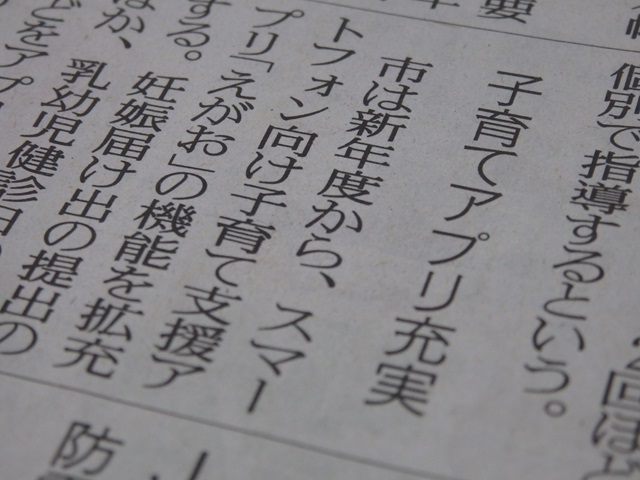 2回ほど
個別で指導するという。
子育てアプリ充実
市は新年度から、スマー
トフォン向け子育て支援ア
プリ「えがお」の機能を拡充
する。妊娠届け出の提出の
ほか、乳幼児健診日の
どをアプリ
要
防